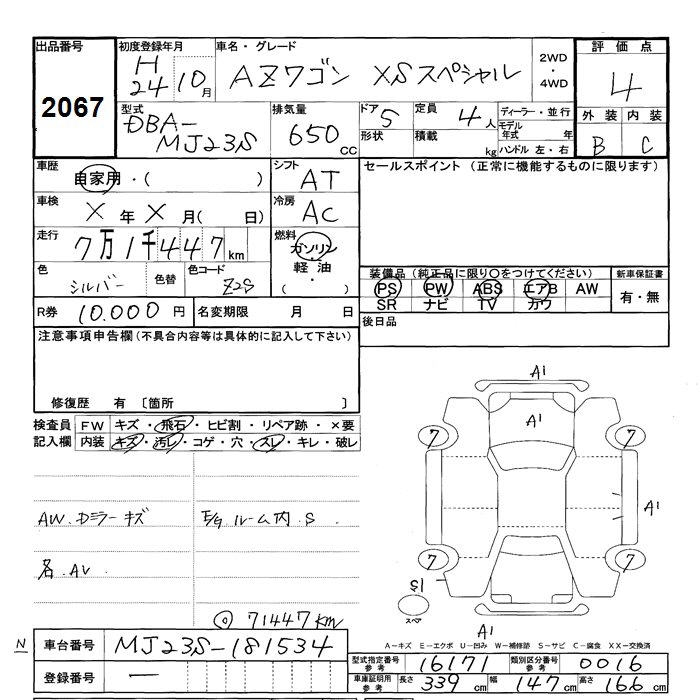 出品番号 初度登録年月 車名・グレード 2WD・4WD 評価点
2067 H24 10月 AZワゴン XSスペシャル 4
型式 排気量 ドア 5 定員 4人 ディーラー・並行 外装 内装
DBA-MJ23S 650cc 形状 積載 kg モデル年式 年 B C
ハンドル 左・右
車歴 自家用・( ) シフト AT セールスポイント (正常に機能するものに限ります)
車検 X年X月( 日) 冷房 AC
走行 7万1千447km 燃料 ガソリン
軽油
・( )
色 シルバー 色替 色コード Z2S
装備品(純正品に限り○をつけてください) 新車保証書
PS PW ABS エアB AW 有・無
SR ナビ TV カワ
R券 10,000円 名変期限 月 日 後日品
注意事項申告欄(不具合内容等は具体的に記入して下さい)
修復歴 有 〔箇所 〕
検査員 FW キズ・飛石・ヒビ割・リペア跡・×要
記入欄 内装 キズ・汚レ・コゲ・穴・スレ・キレ・破レ
AW.Dミラーキズ E/gルーム内.S
各.AV
◎ 71447km
A1
A1
7 7
A1
7 7
S1
スペア
A1
A-キズ E-エクボ U-凹み W-補修跡 S-サビ C-腐食 XX-交換済
N 車台番号 MJ23S-181534
登録番号 —
型式指定番号 参考 16171 類別区分番号 参考 0016
車庫証明用 参考 長さ 339cm 幅 147cm 高さ 166cm